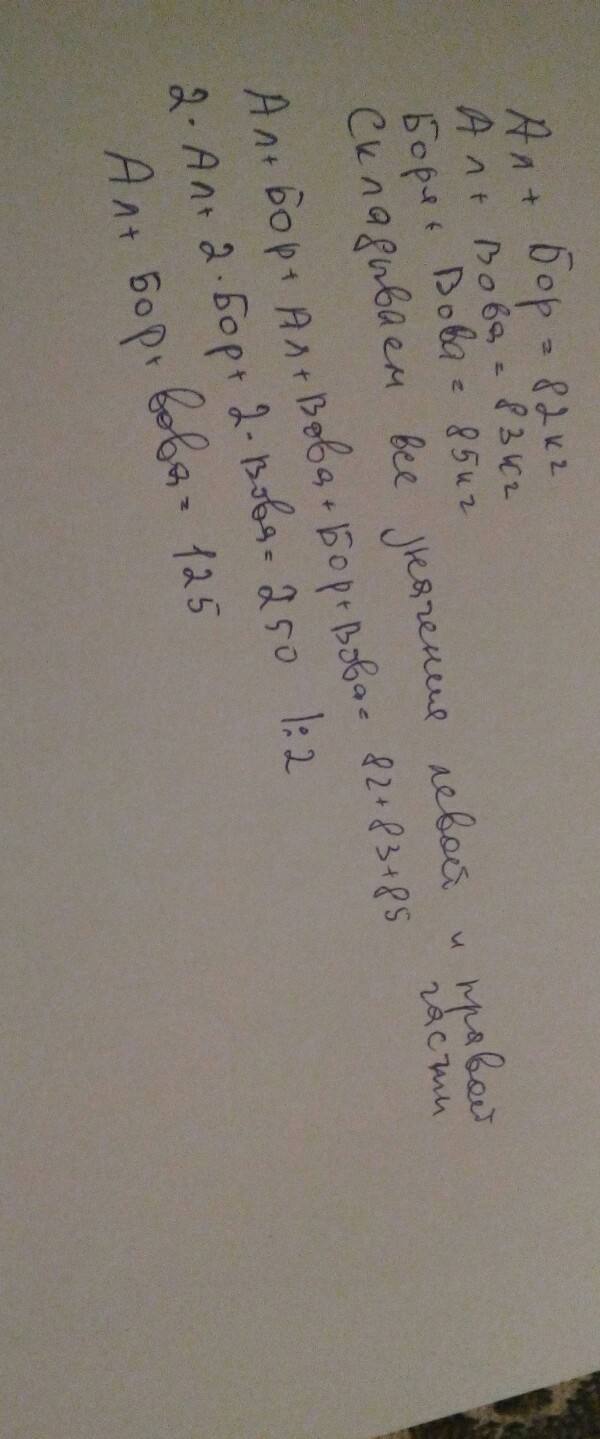 Ал + Бор = 82 кг
Ал + Вова = 83 кг
Боря + Вова = 85 кг
Складываем все значения левой и правой
части
Ал + Бор + Ал + Вова + Бор + Вова = 82 + 83 + 85
2 · Ал + 2 · Бор + 2 · Вова = 250 |:2
Ал + Бор + Вова = 125